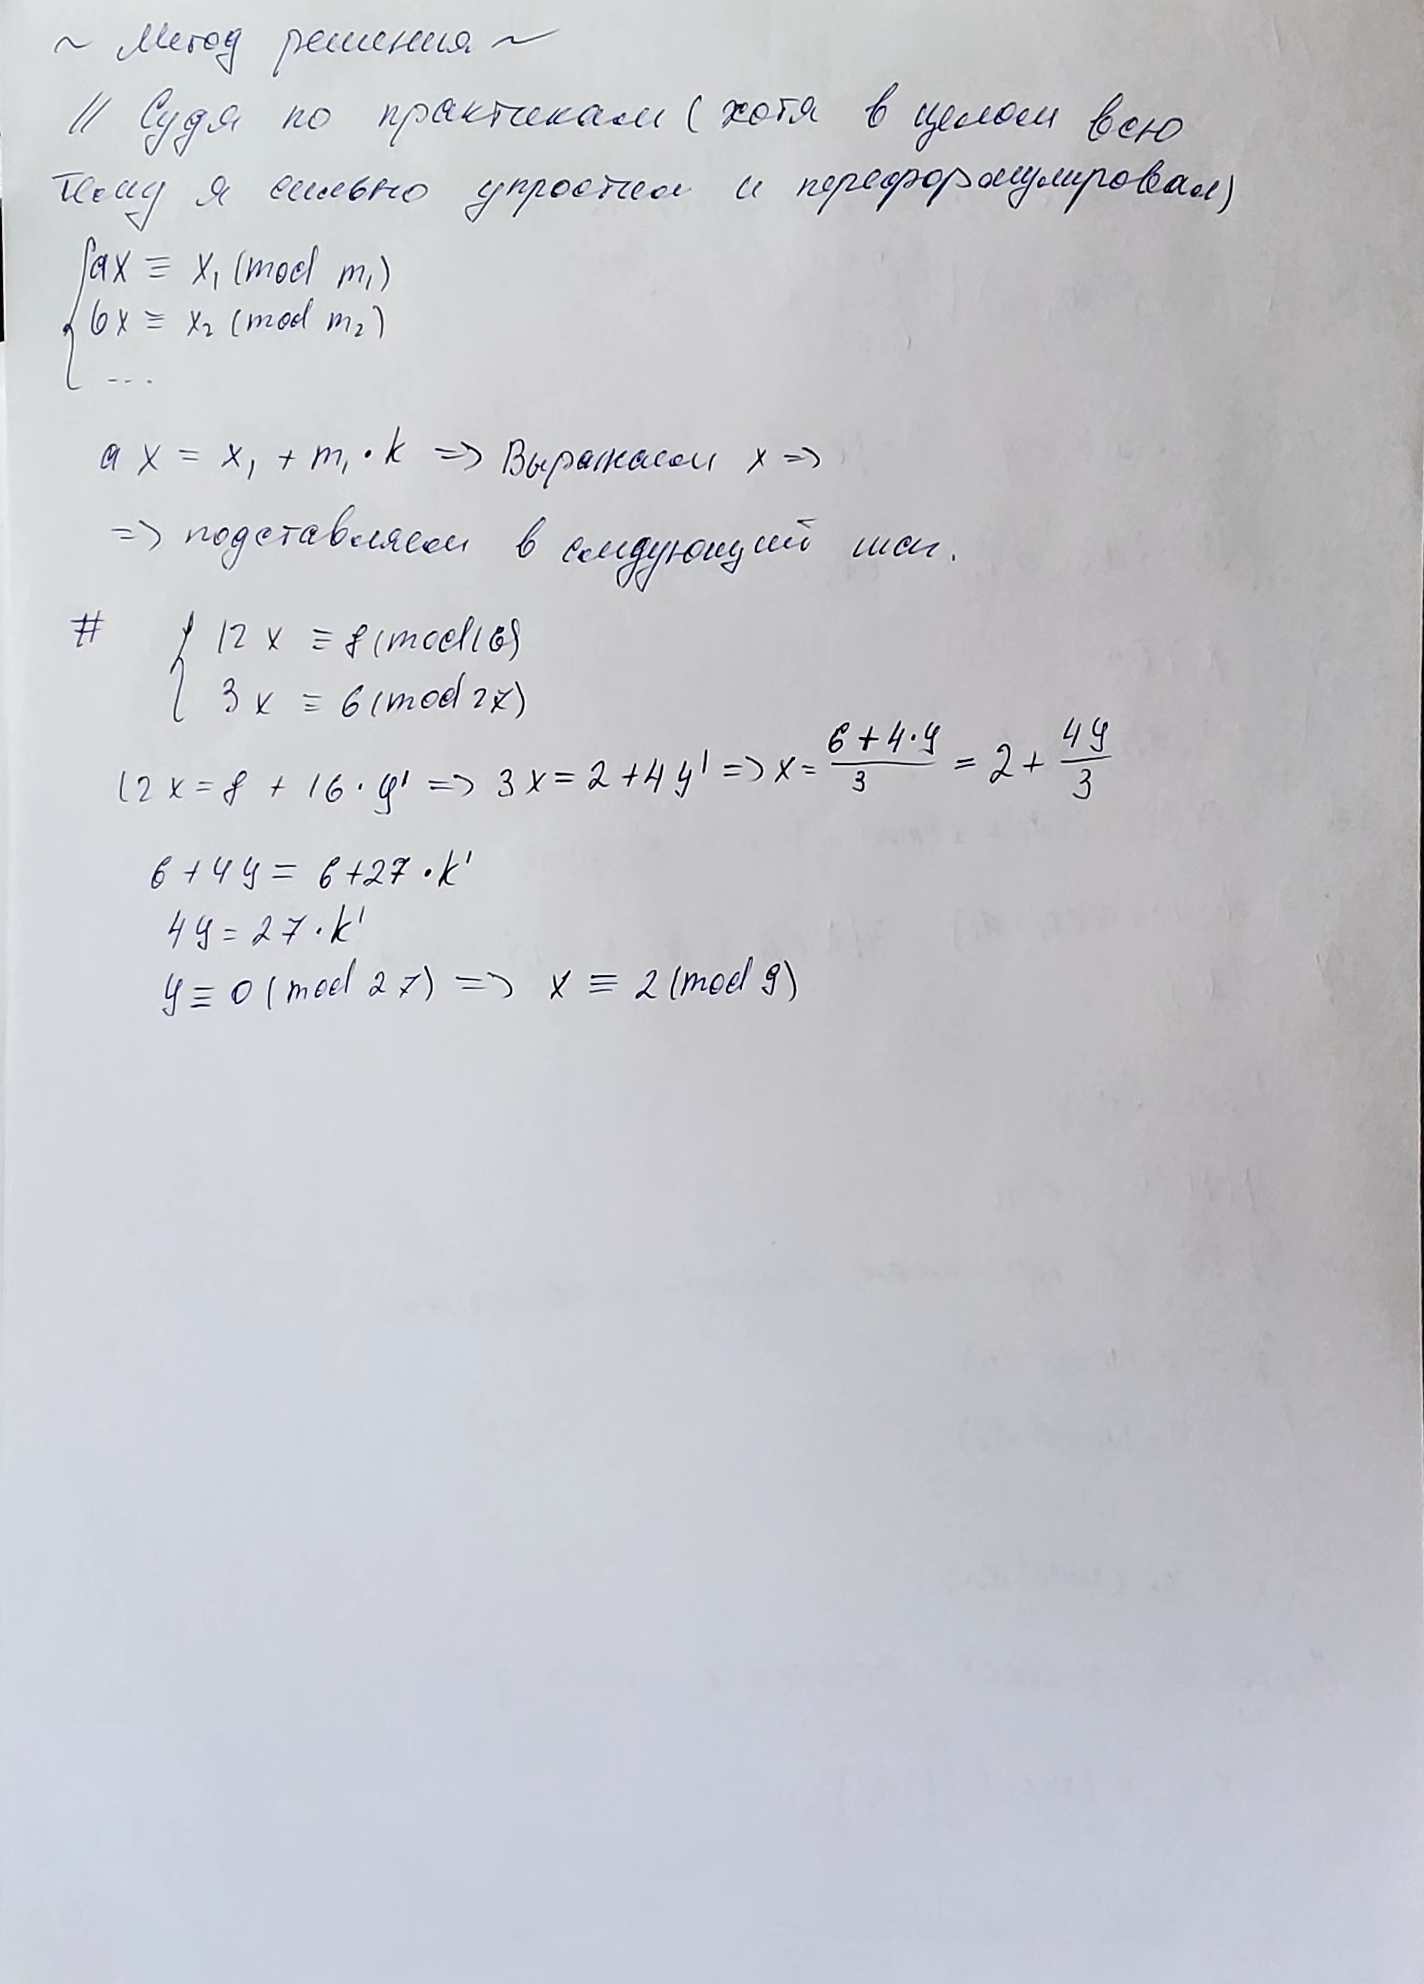 ~ Метод решения ~
// Судя по практикам (хотя в целом всю
тему я сильно упростил и переформулировал)
{ ax ≡ x₁ (mod m₁)
bx ≡ x₂ (mod m₂)
...
ax = x₁ + m₁ · k => Выражаем x =>
=> подставляем в следующий шаг.
# { 12x ≡ 8 (mod 16)
3x ≡ 6 (mod 27)
12x = 8 + 16 · y' => 3x = 2 + 4y' => x = (6 + 4 · y)/3 = 2 + 4y/3
6 + 4y = 6 + 27 · k'
4y = 27 · k'
y ≡ 0 (mod 27) => x ≡ 2 (mod 9)